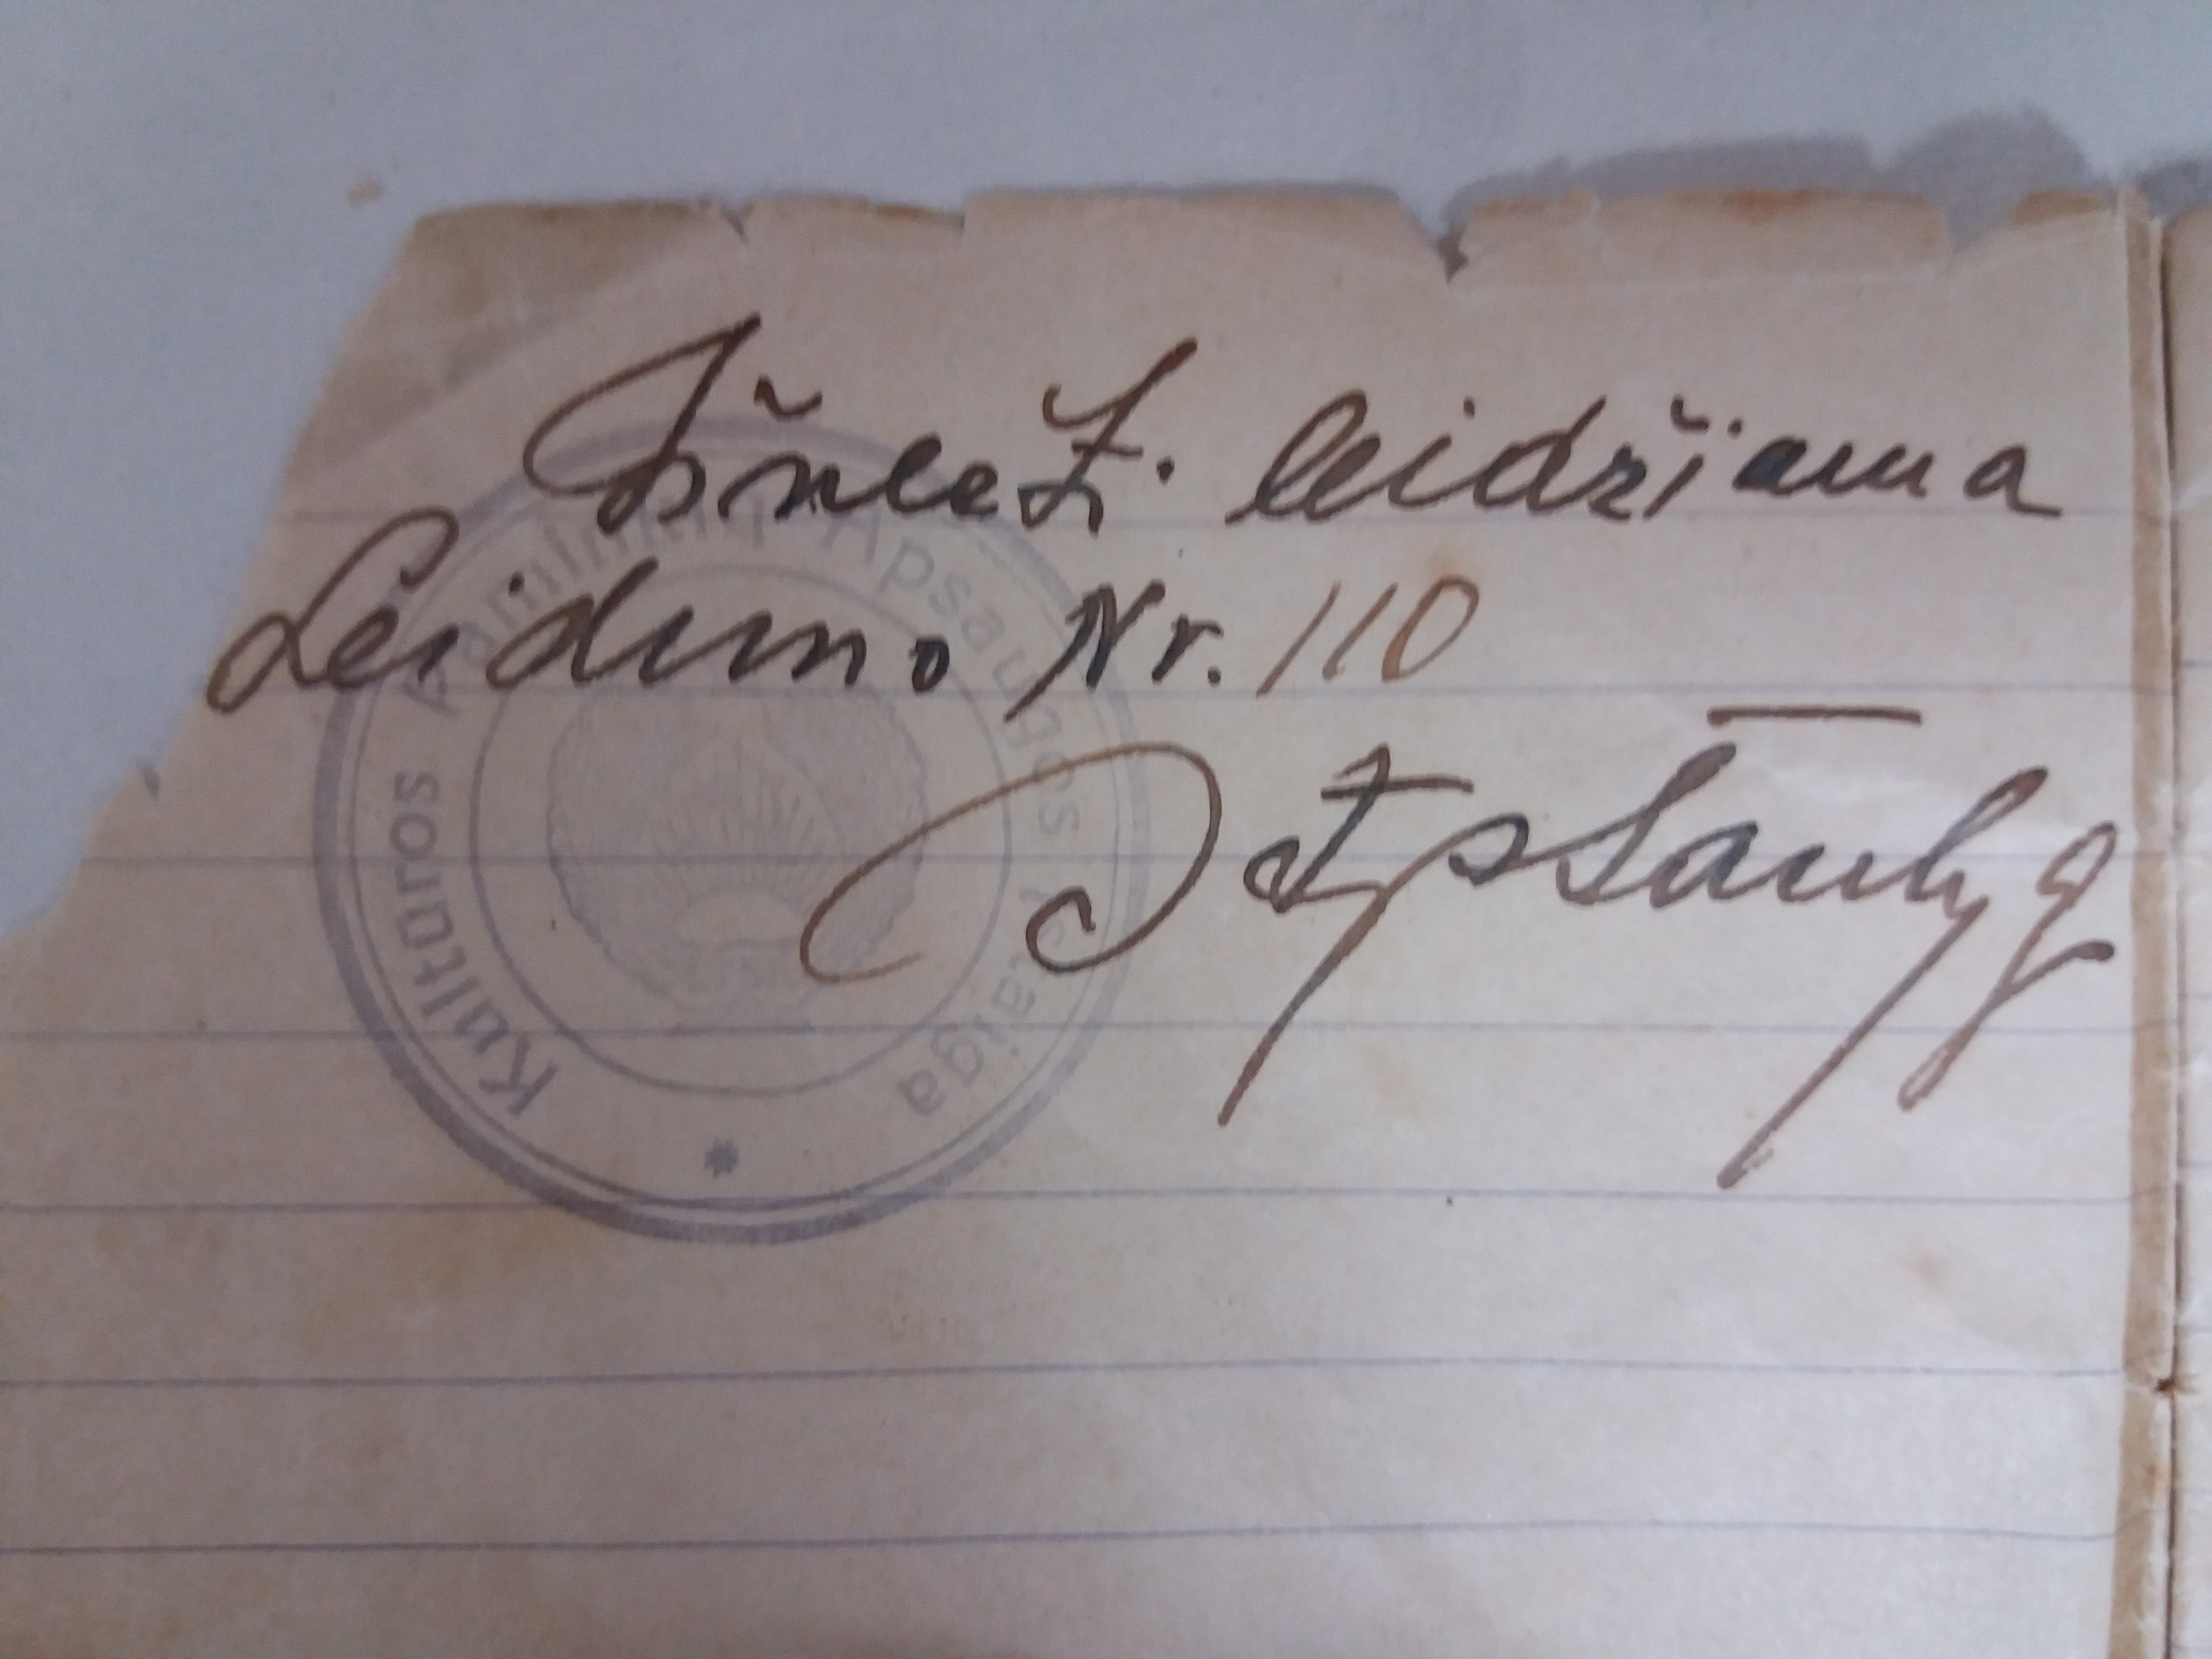 Išvež. leidžiama
Leidimo Nr. 110
Kultūros Paminklų Apsaugos Įstaiga